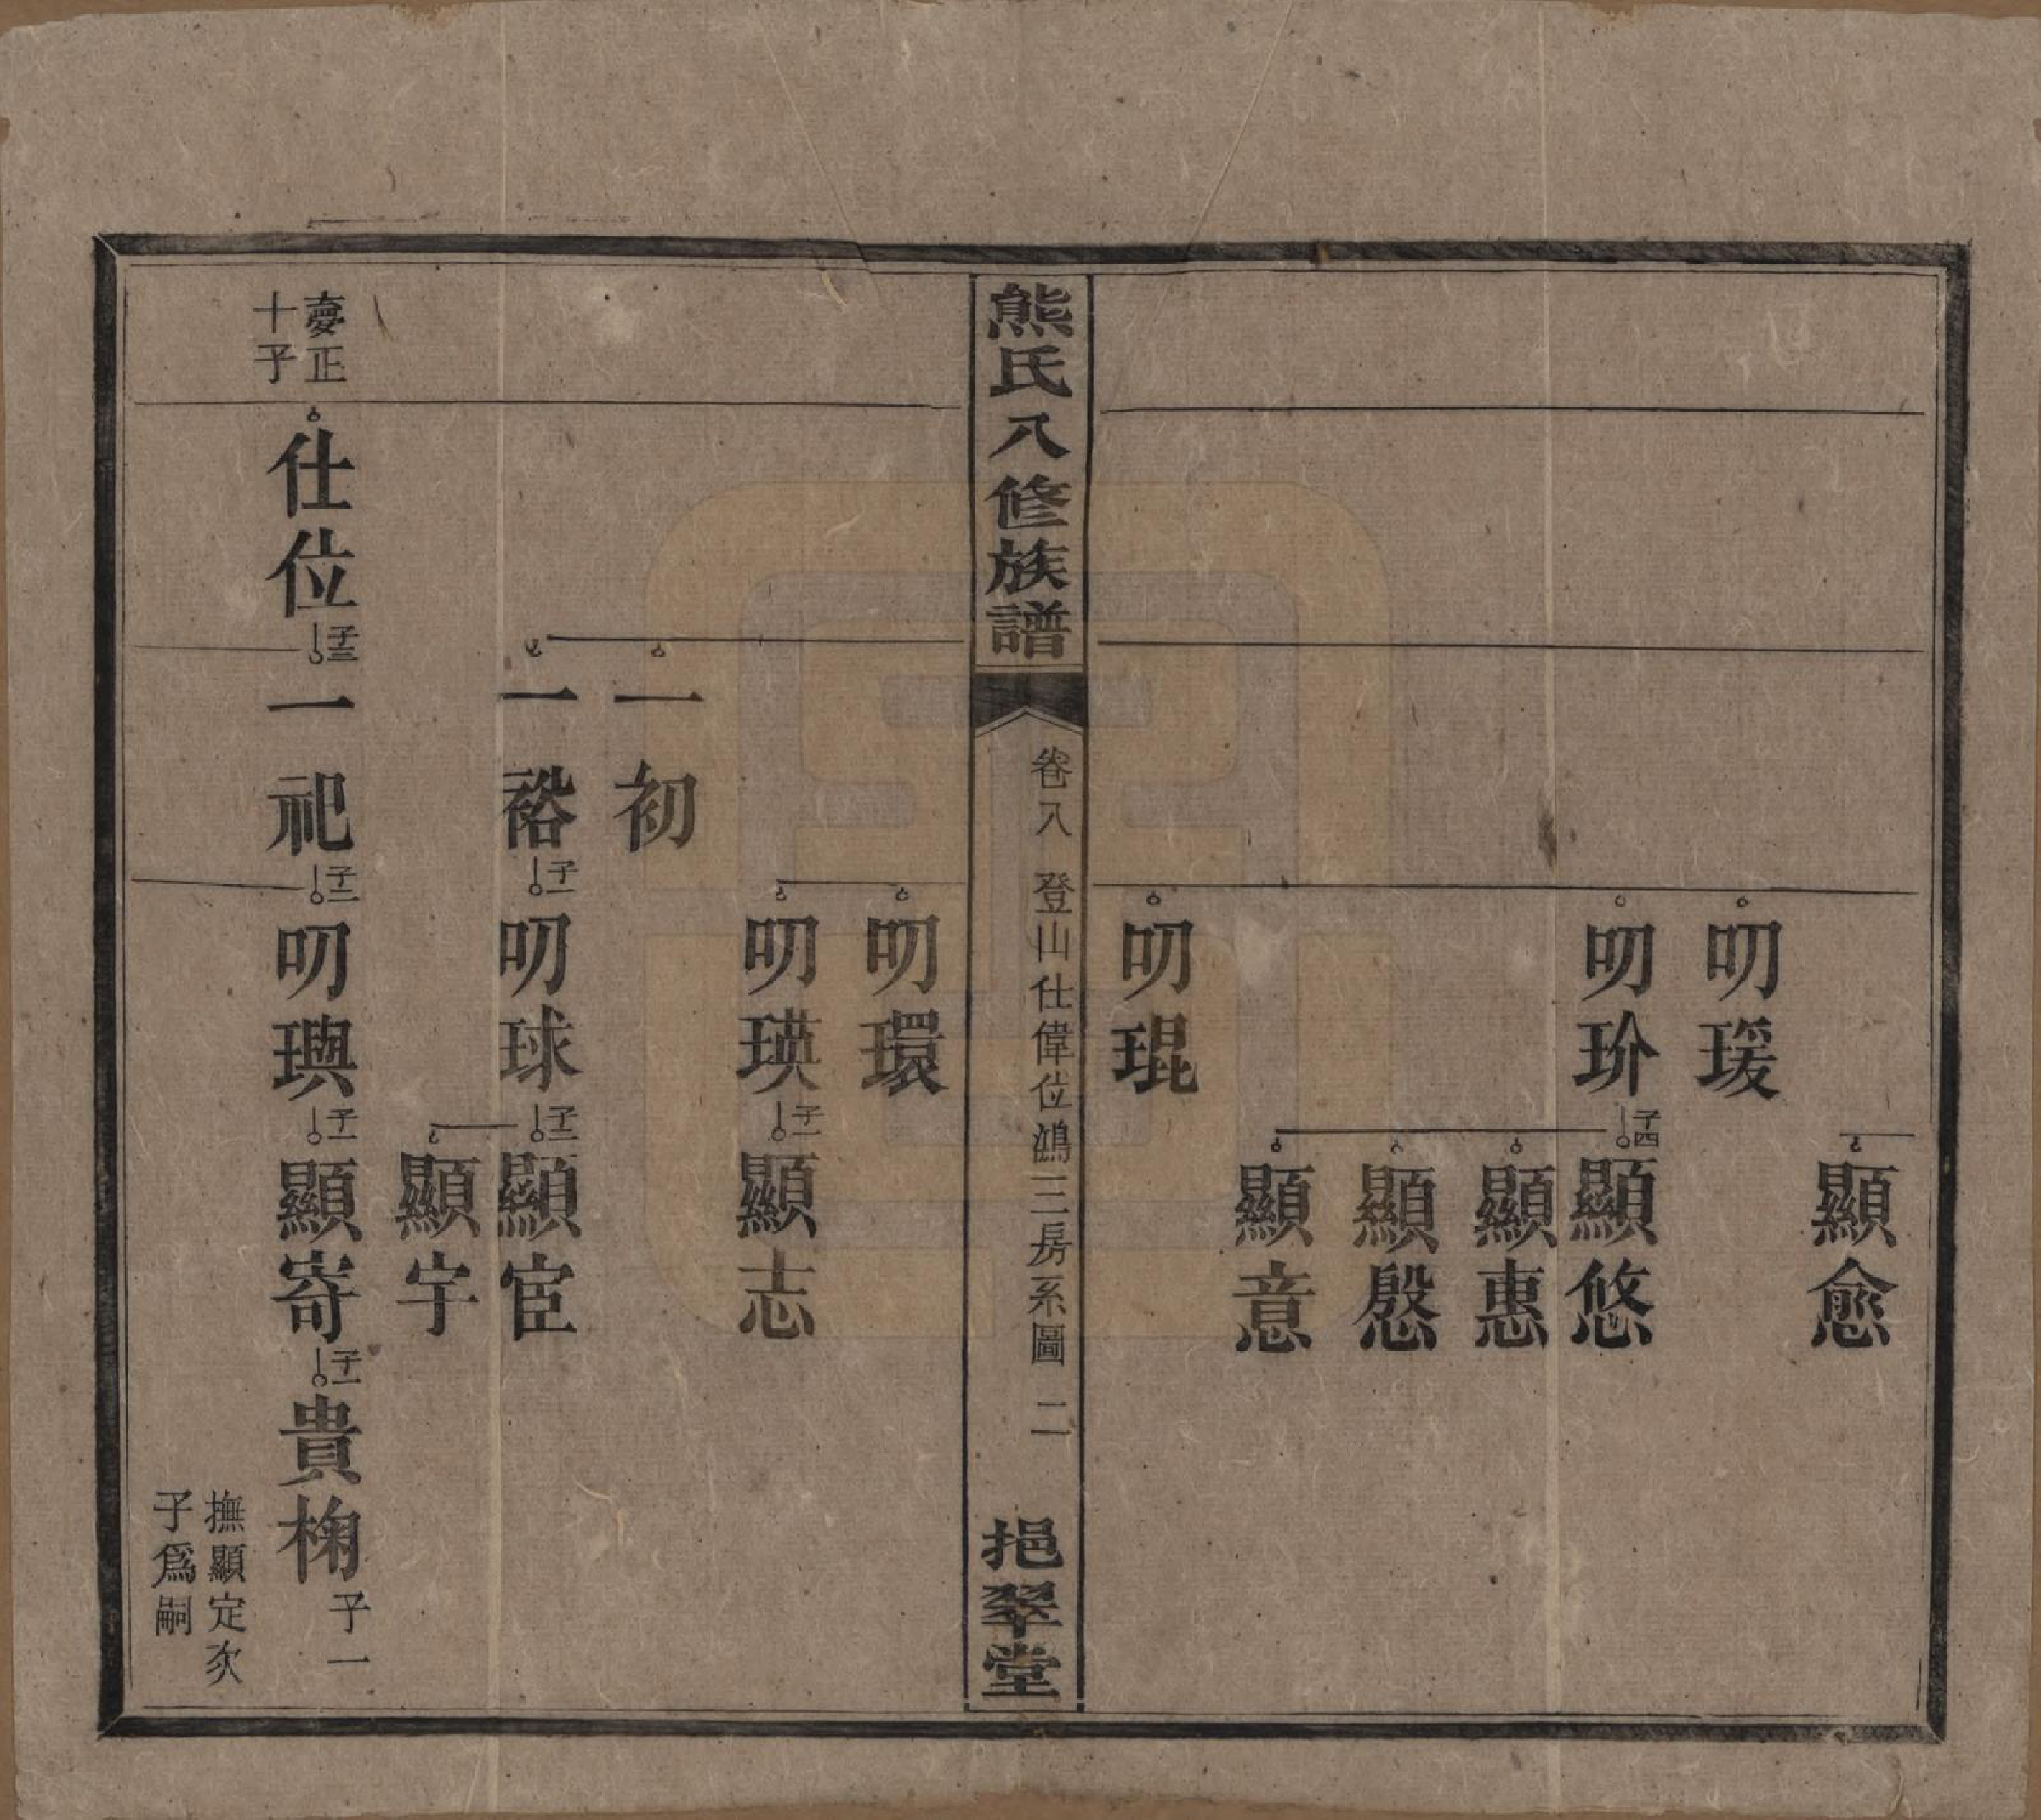 顯愈
叨瑗
叨玠
子四
顯悠
顯惠
顯慇
顯意
叨琨
熊氏八修族譜
卷八
登山仕偉位鴻三房系圖
二
挹翠堂
叨環
叨瑛
子一
顯志
一初
一裕
子一
叨球
子二
顯宦
顯宇
夢正
十子
仕位
子三
一祀
子二
叨璵
子一
顯嵜
子一
貴椈
子一
撫顯定次
子為嗣